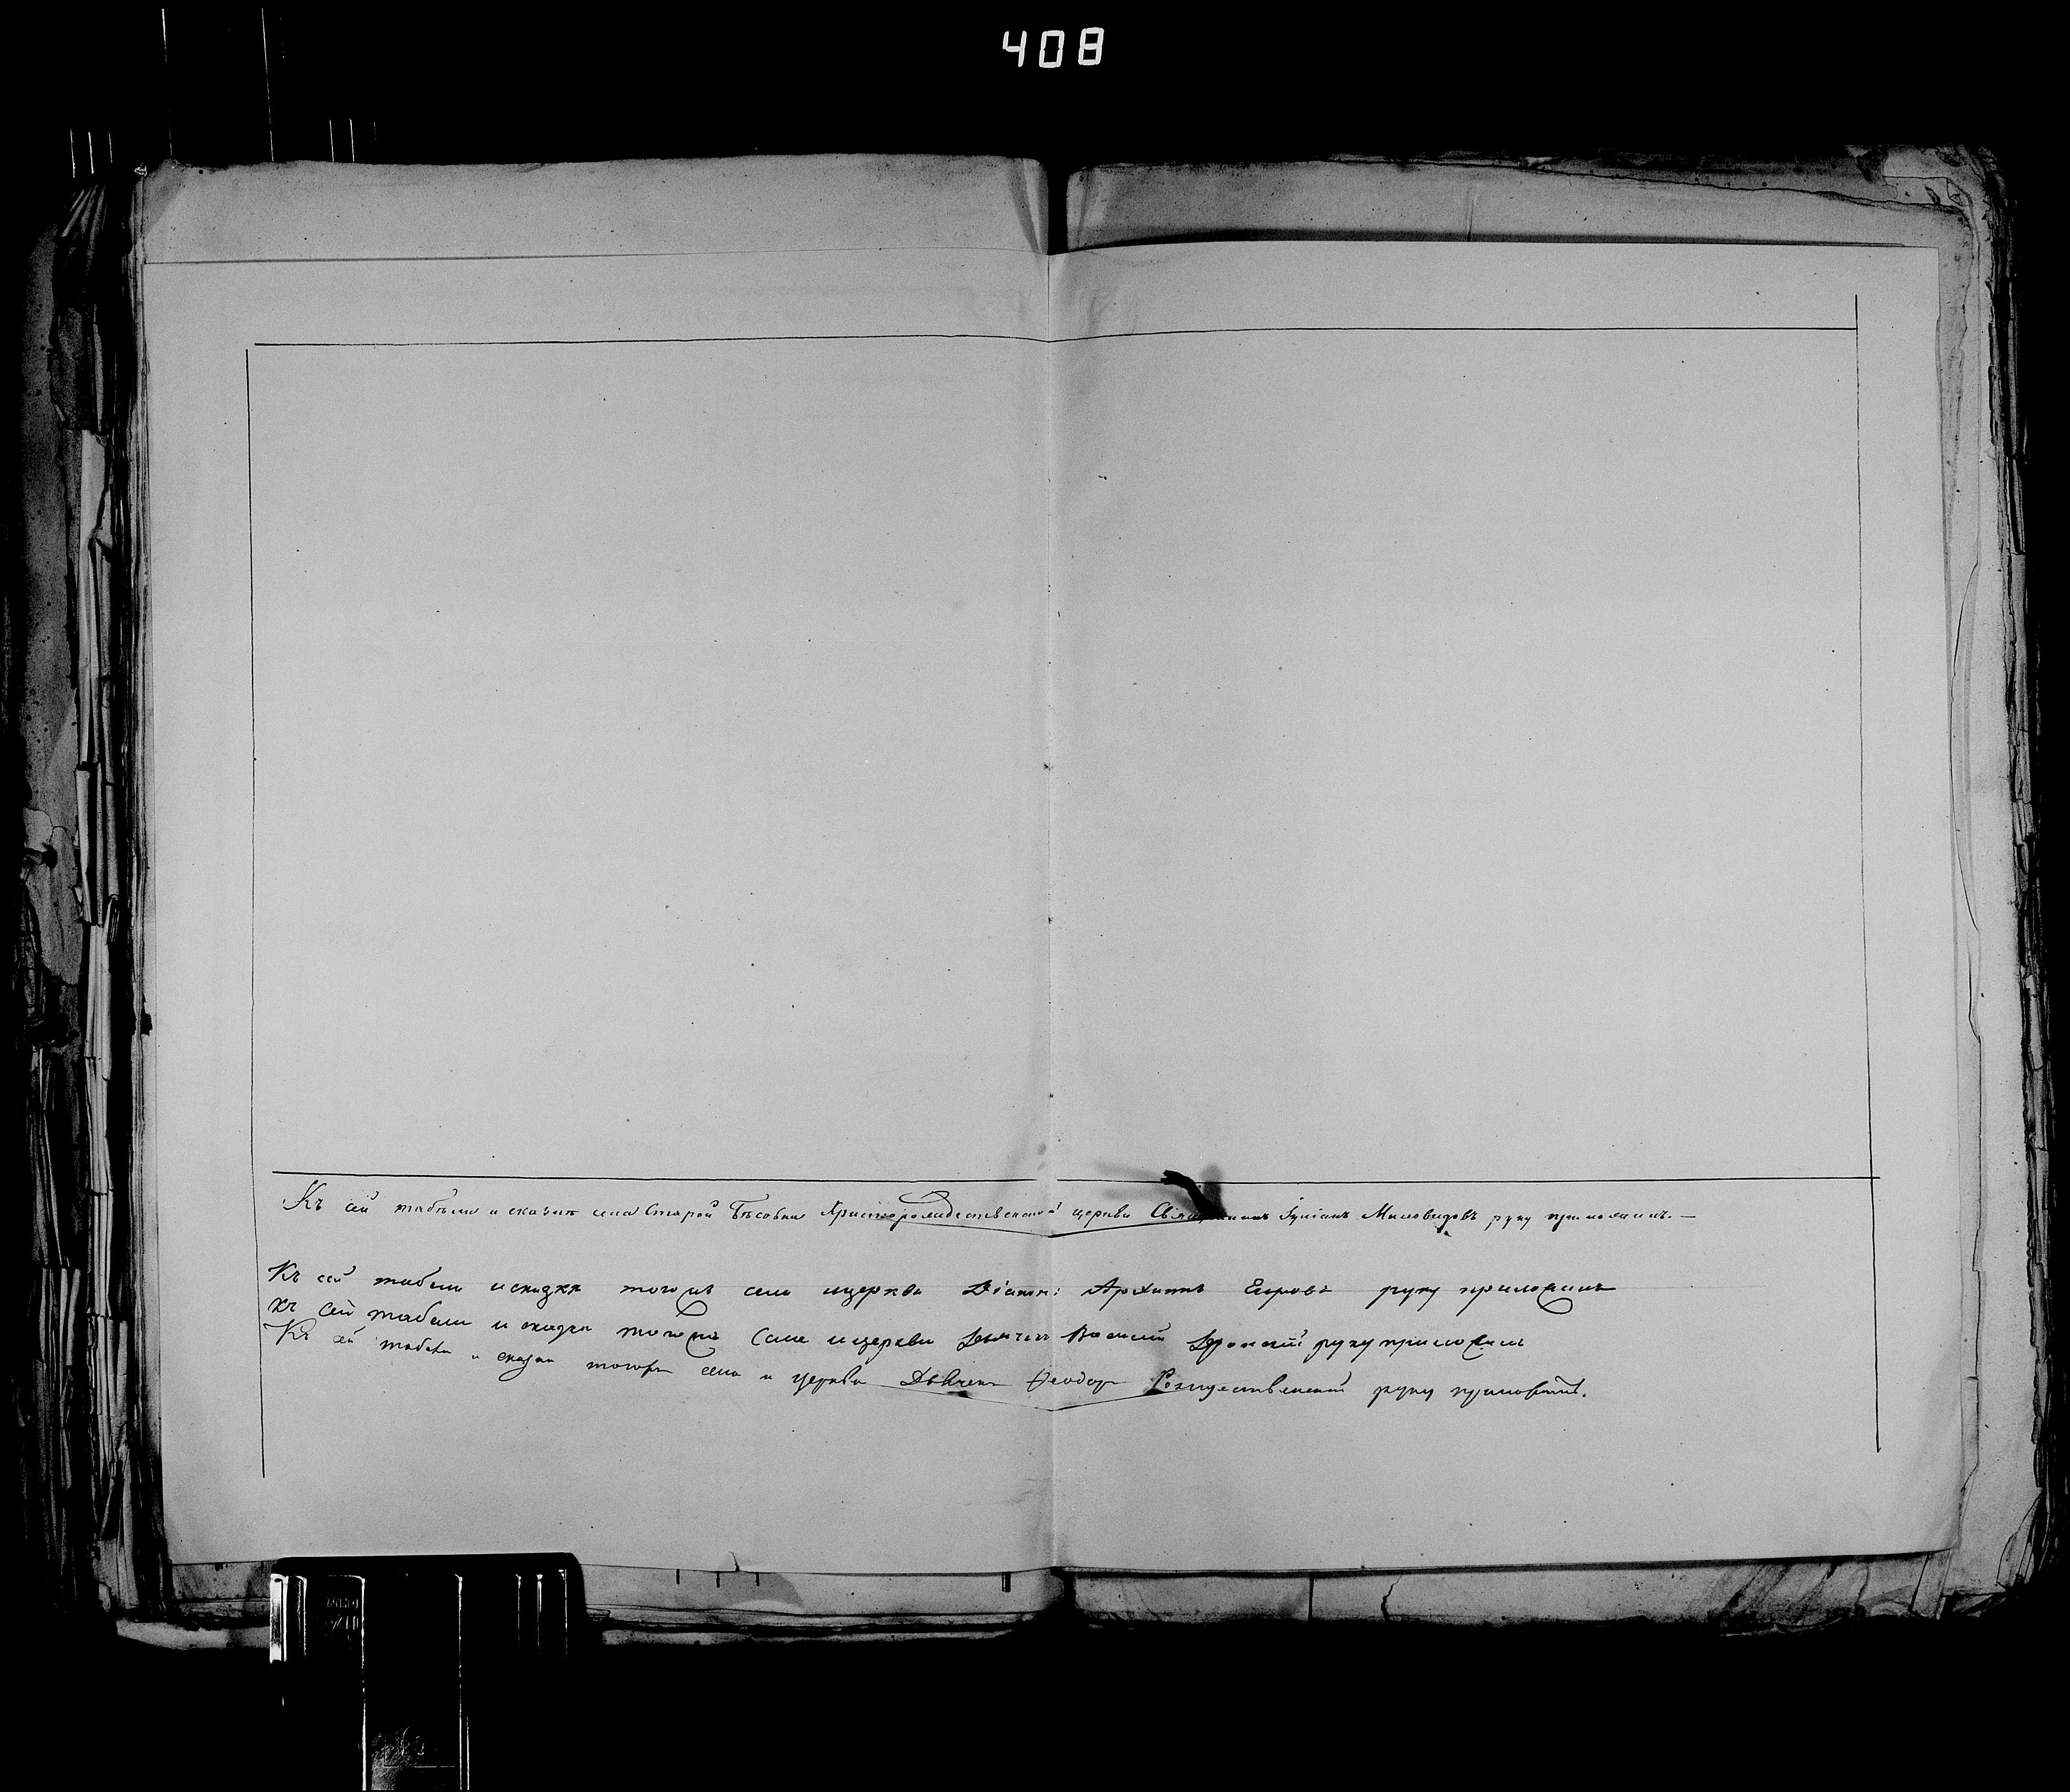 408
Къ сей табели и сказкѣ села Старой Бѣсовки Христорождественской церкви Священникъ Іуліанъ Миловидовъ руку приложилъ. —
Къ сей табели и сказки тогожъ села и церкви Діаконъ: Архиппъ Егоровъ руку приложилъ
къ сей табели и сказки тогожъ села и церкви Дьячекъ Василий руку приложилъ
Къ сей табели и сказки тогожъ села и церкви Дьячекъ Феодоръ Рождественский руку приложилъ.